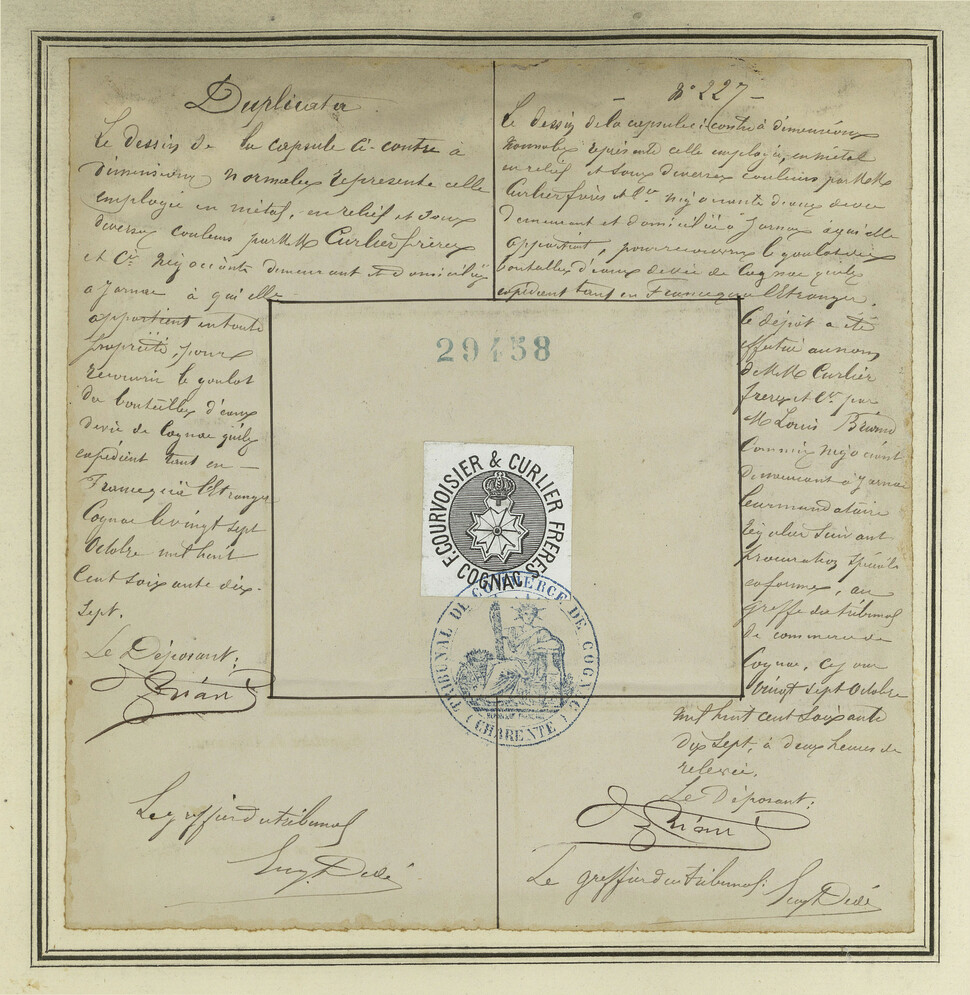 Duplicata
Le dessin de la capsule ci-contre à
dimensions normales représente celle
employée en métal, en relief et sous
diverses couleurs par MM Curlier frères
et Cie négociants demeurant et domiciliés
à Jarnac à qui elle
appartient en toute
propriété, pour
recouvrir le goulot
des bouteilles d'eaux
de vie de Cognac qu'ils
expédient tant en
France qu'à l'Etranger
Cognac le vingt sept
Octobre mil huit
cent soixante dix-
sept.
Le Déposant:
Le greffier du tribunal
Eug. Dédé
N° 227
Le dessin de la capsule ci-contre à dimensions
normales représente celle employée, en métal
en relief et sous diverses couleurs par MM
Curlier frères et Cie négociants d'eaux de vie
demeurant et domiciliés à Jarnac à qui elle
appartient, pour recouvrir le goulot des
bouteilles d'eaux de vie de Cognac qu'ils
expédient tant en France qu'à l'Etranger.
Le dépôt a été
effectué au nom
de MM Curlier
frères et Cie par
M Louis
Commis négociant
demeurant à Jarnac
leur mandataire
régulier suivant
procuration spéciale
conforme, au
greffe du tribunal
de commerce de
Cognac, ce jour
vingt sept Octobre
mil huit cent soixante
dix sept, à deux heures de
relevée.
Le Déposant:
Le greffier du tribunal:
Eug Dédé
29458
F. COURVOISIER & CURLIER FRERES
COGNAC
TRIBUNAL DE COMMERCE DE COGNAC
(CHARENTE)